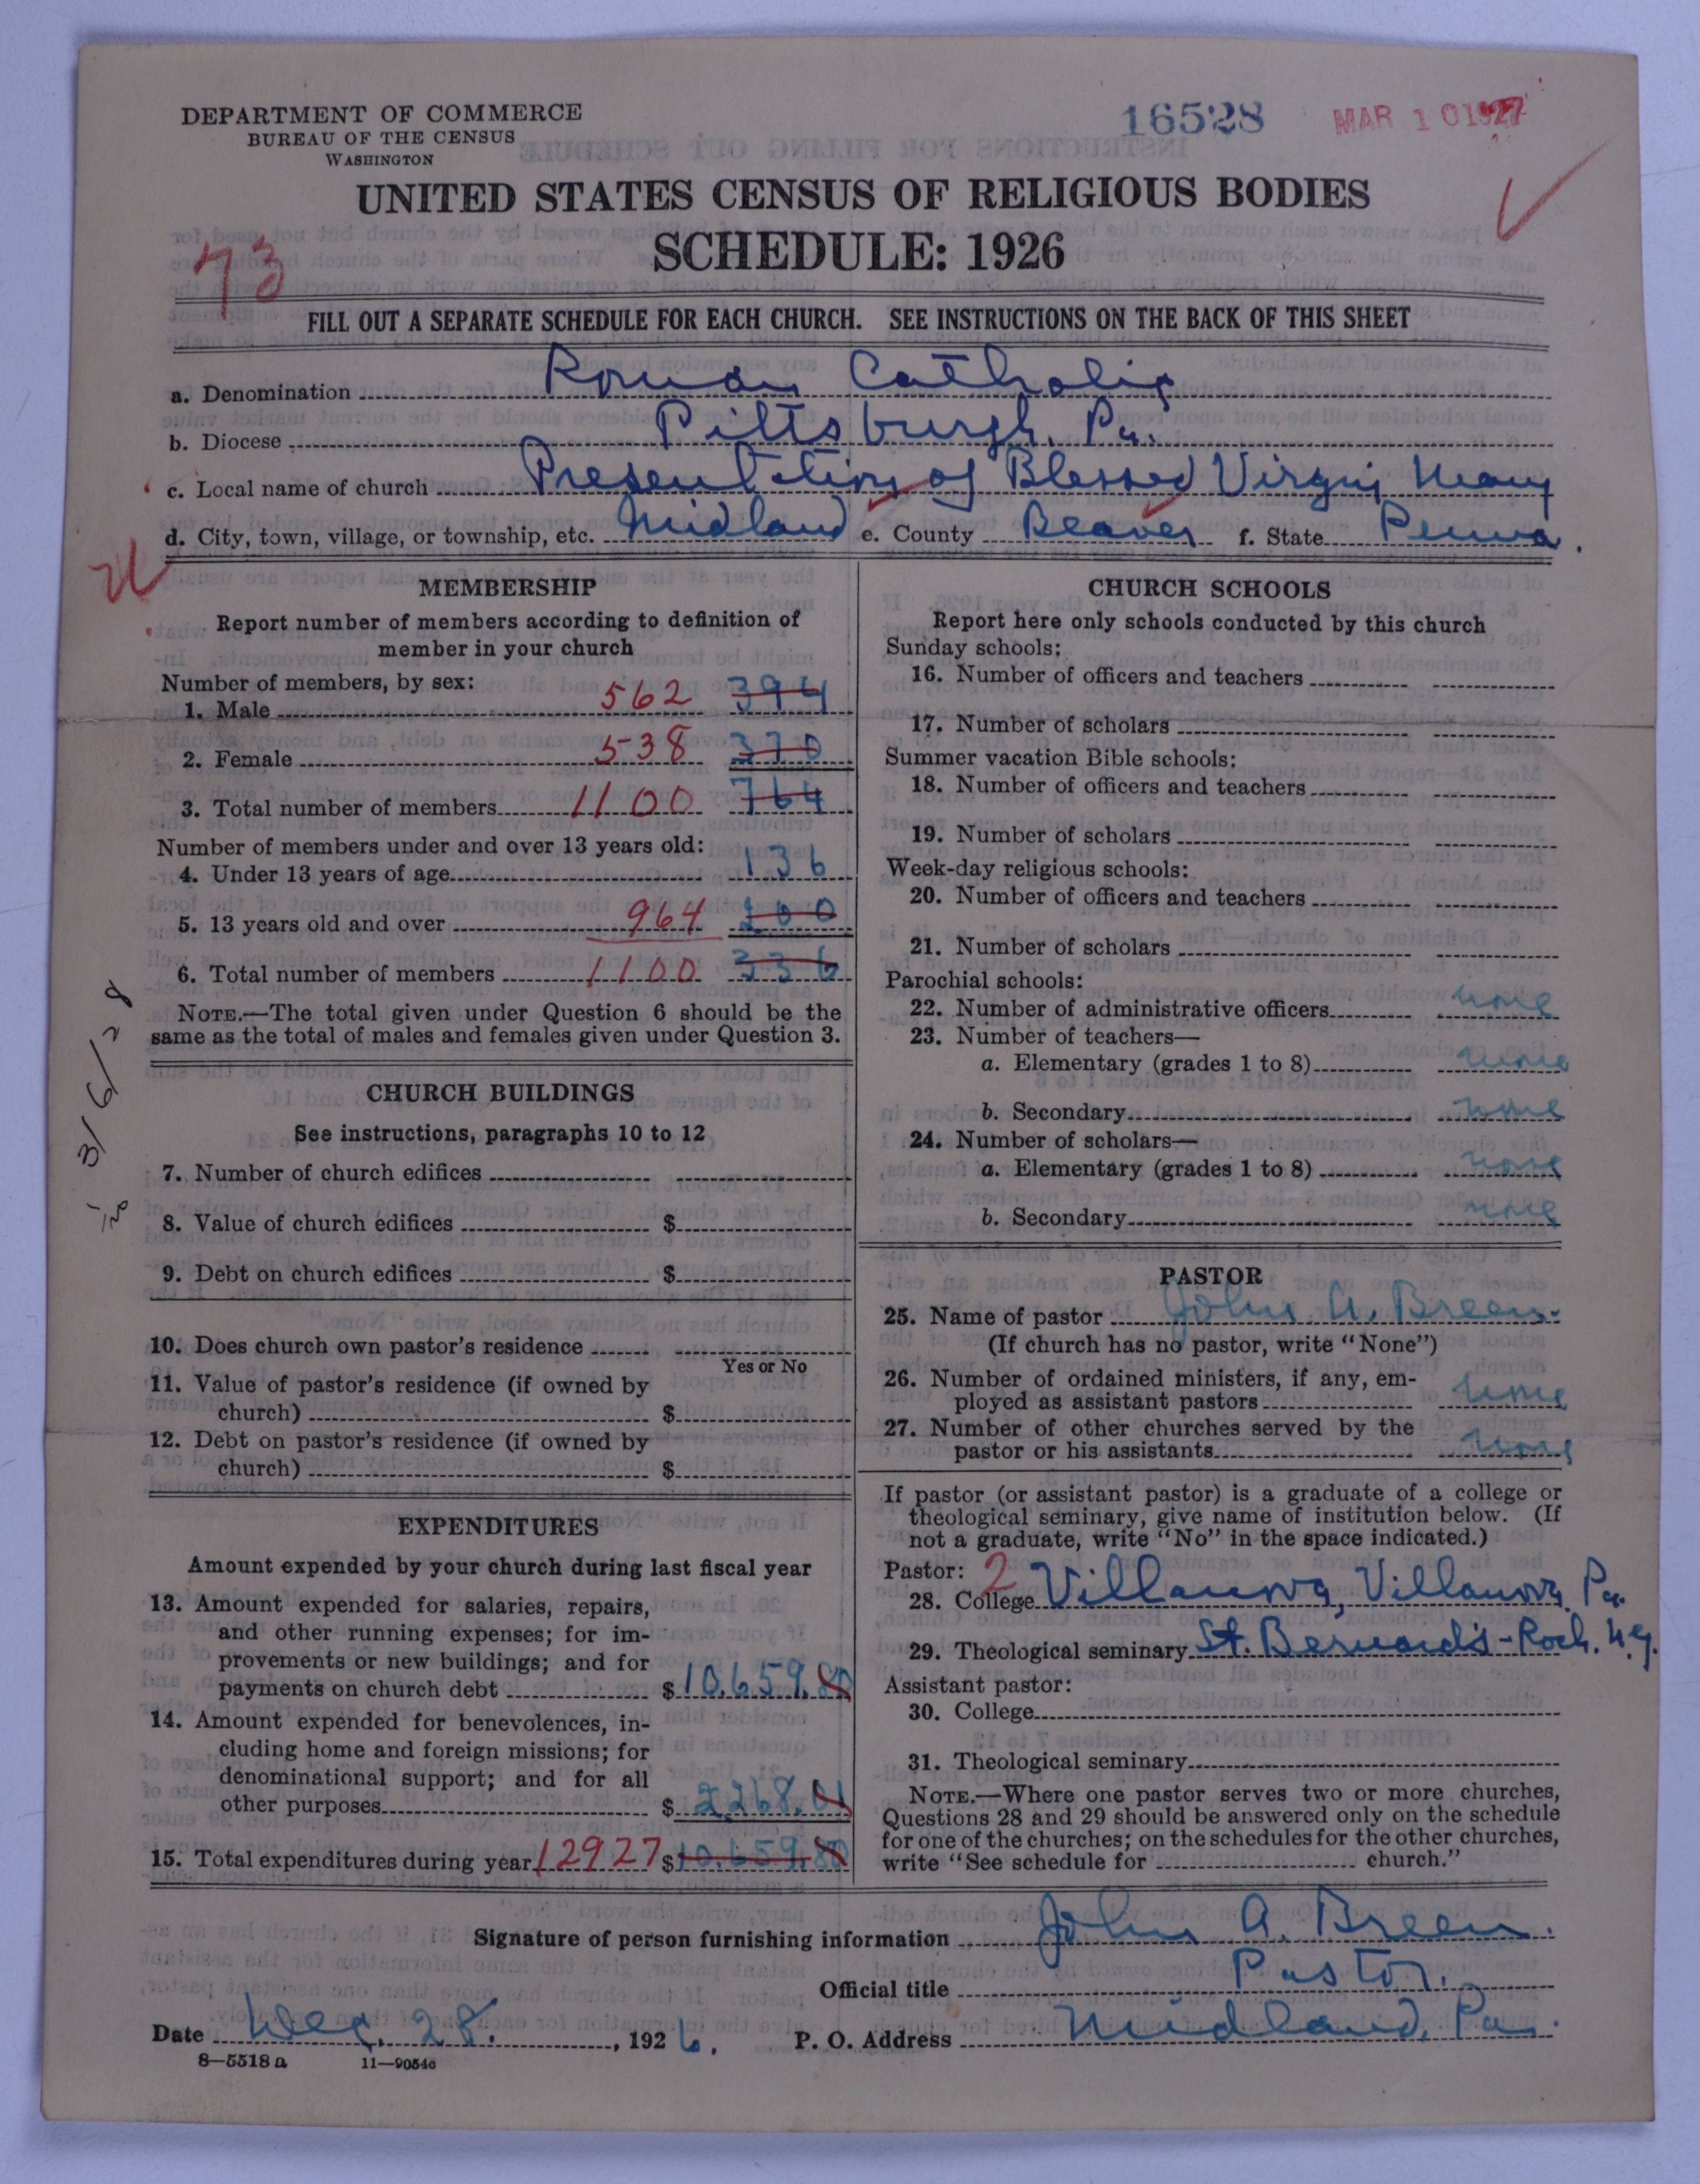 DEPARTMENT OF COMMERCE
BUREAU OF THE CENSUS
WASHINGTON
16528
MAR 10 1927
UNITED STATES CENSUS OF RELIGIOUS BODIES
SCHEDULE: 1926
73
FILL OUT A SEPARATE SCHEDULE FOR EACH CHURCH. SEE INSTRUCTIONS ON THE BACK OF THIS SHEET
a. Denomination Roman Catholic
b. Diocese Pittsburgh, Pa.
c. Local name of church Presentation of Blessed Virgin Mary
d. City, town, village, or township, etc. Midland e. County Beaver f. State Penna.
MEMBERSHIP
Report number of members according to definition of
member in your church
Number of members, by sex:
1. Male 562 394
2. Female 538 370
3. Total number of members 1100 764
Number of members under and over 13 years old:
4. Under 13 years of age 136
5. 13 years old and over 964 200
6. Total number of members 1100 336
NOTE.—The total given under Question 6 should be the
same as the total of males and females given under Question 3.
3/6/28
CHURCH BUILDINGS
See instructions, paragraphs 10 to 12
7. Number of church edifices
8. Value of church edifices $
9. Debt on church edifices $
10. Does church own pastor's residence
Yes or No
11. Value of pastor's residence (if owned by
church) $
12. Debt on pastor's residence (if owned by
church) $
EXPENDITURES
Amount expended by your church during last fiscal year
13. Amount expended for salaries, repairs,
and other running expenses; for im-
provements or new buildings; and for
payments on church debt $ 10,659.80
14. Amount expended for benevolences, in-
cluding home and foreign missions; for
denominational support; and for all
other purposes $ 2268.
15. Total expenditures during year 12927 $ 10,659.80
CHURCH SCHOOLS
Report here only schools conducted by this church
Sunday schools:
16. Number of officers and teachers
17. Number of scholars
Summer vacation Bible schools:
18. Number of officers and teachers
19. Number of scholars
Week-day religious schools:
20. Number of officers and teachers
21. Number of scholars
Parochial schools:
22. Number of administrative officers none
23. Number of teachers—
a. Elementary (grades 1 to 8) none
b. Secondary none
24. Number of scholars—
a. Elementary (grades 1 to 8) none
b. Secondary none
PASTOR
25. Name of pastor John A. Breen.
(If church has no pastor, write "None")
26. Number of ordained ministers, if any, em-
ployed as assistant pastors none
27. Number of other churches served by the
pastor or his assistants none
If pastor (or assistant pastor) is a graduate of a college or
theological seminary, give name of institution below. (If
not a graduate, write "No" in the space indicated.)
Pastor: 2
28. College Villanova, Villanova Pa.
29. Theological seminary St. Bernard's - Roch. N.Y.
Assistant pastor:
30. College
31. Theological seminary
NOTE.—Where one pastor serves two or more churches,
Questions 28 and 29 should be answered only on the schedule
for one of the churches; on the schedules for the other churches,
write "See schedule for church."
Signature of person furnishing information John A. Breen.
Official title Pastor.
Date Dec. 28. , 1926. P. O. Address Midland, Pa.
8—5518 a 11—9054c